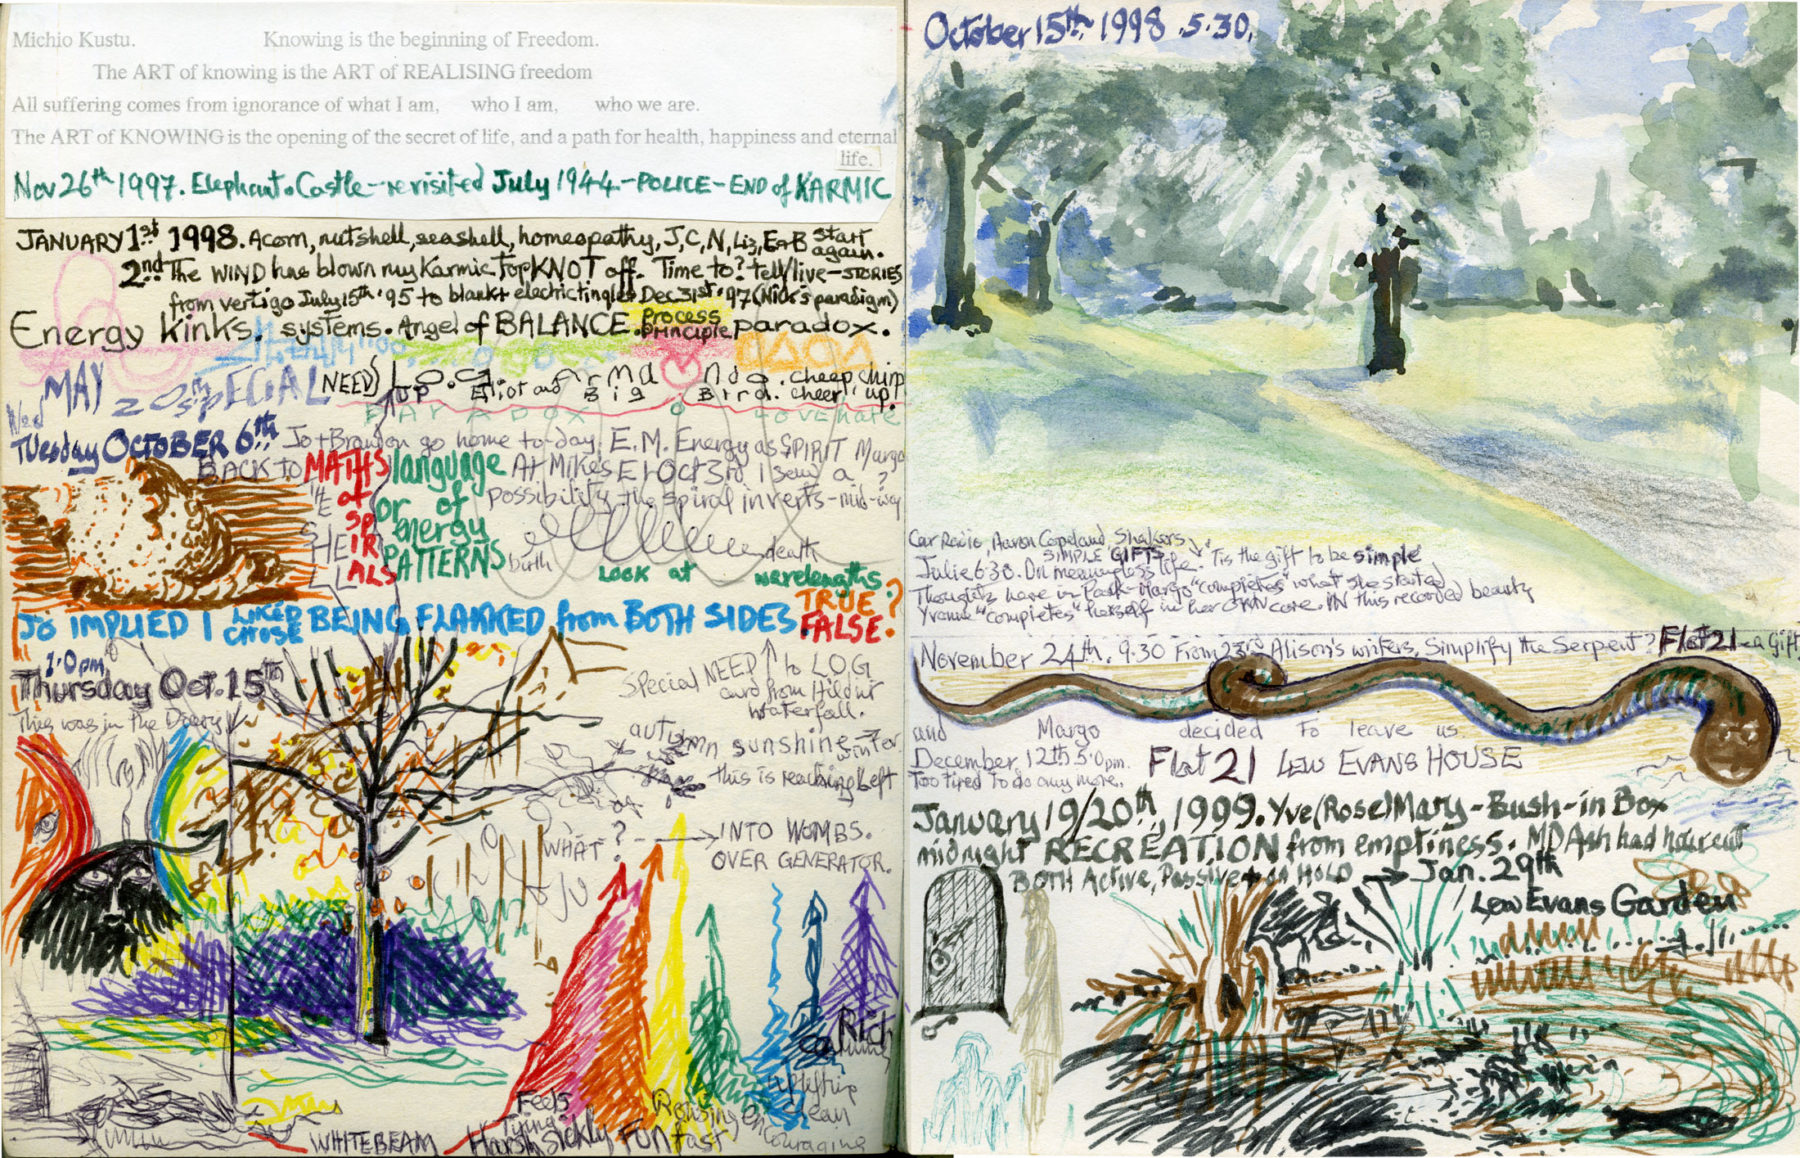 Michio Kustu. Knowing is the beginning of Freedom.
The ART of knowing is the ART of REALISING freedom
All suffering comes from ignorance of what I am, who I am, who we are.
The ART of KNOWING is the opening of the secret of life, and a path for health, happiness and eternal
life.
Nov 26th 1997. Elephant & Castle - revisited July 1944 - POLICE - END of KARMIC
JANUARY 1st 1998. Acorn, nutshell, seashell, homeopathy, J, C, N, Liz, E&B start
again.
2nd The WIND has blown my Karmic TOPKNOT off. Time to? tell/live - STORIES
from vertigo July 15th '95 to blank + electric tingles Dec 31st '97 (Nick's paradigm)
Energy kinks. systems. Angel of BALANCE. Process Principle paradox.
MAY 20 SPECIAL NEED)
UP Eliot and Big Bird. cheep chirp
cheer up!
PARADOX LOVE hate
Wed
Tuesday OCTOBER 6th Jo + Brandon go home to-day. E.M. Energy as SPIRIT Margo
BACK TO MATHS language At Mikes E1 Oct 3rd I saw a ?
of or of possibility the spiral inverts - mid-way
SPIRALS energy
PATTERNS
birth death
LOOK at wavelengths
JO IMPLIED I LIKED CHOSE BEING FLANKED from BOTH SIDES. TRUE? FALSE.
1.0pm
Thursday Oct. 15th
This was in the Diary
Special NEED to LOG
and from Hildur
waterfall.
autumn sunshine - winter
this is reaching Left
WHAT? → INTO WOMBS.
OVER GENERATOR.
Rich
Calming
Uplifting
Clean
Feels
Tying
WHITEBEAM Harsh Sickly Fun fast
Rousing Encouraging
October 15th 1998 .5.30.
Car Radio, Aaron Copeland Shakers
SIMPLE GIFTS 'Tis the gift to be simple
Julie 6.30. On meaningless life.
Thoughts here in Park - Margo "completes" what she started
Yvonne "completes" herself in her OWN core. IN this recorded beauty
November 24th. 9.30 From 23rd Alison's writers, Simplify the Serpent? Flat 21 - a Gift,
and Margo decided to leave us
December 12th 5.0pm. Flat 21 LEW EVANS HOUSE
Too tired to do any more.
January 19/20th, 1999. Yve(Rose)Mary - Bush - in Box
midnight RECREATION from emptiness. MD Ash had haircut
BOTH Active, Passive + on HOLD → Jan. 29th
Lew Evans Garden